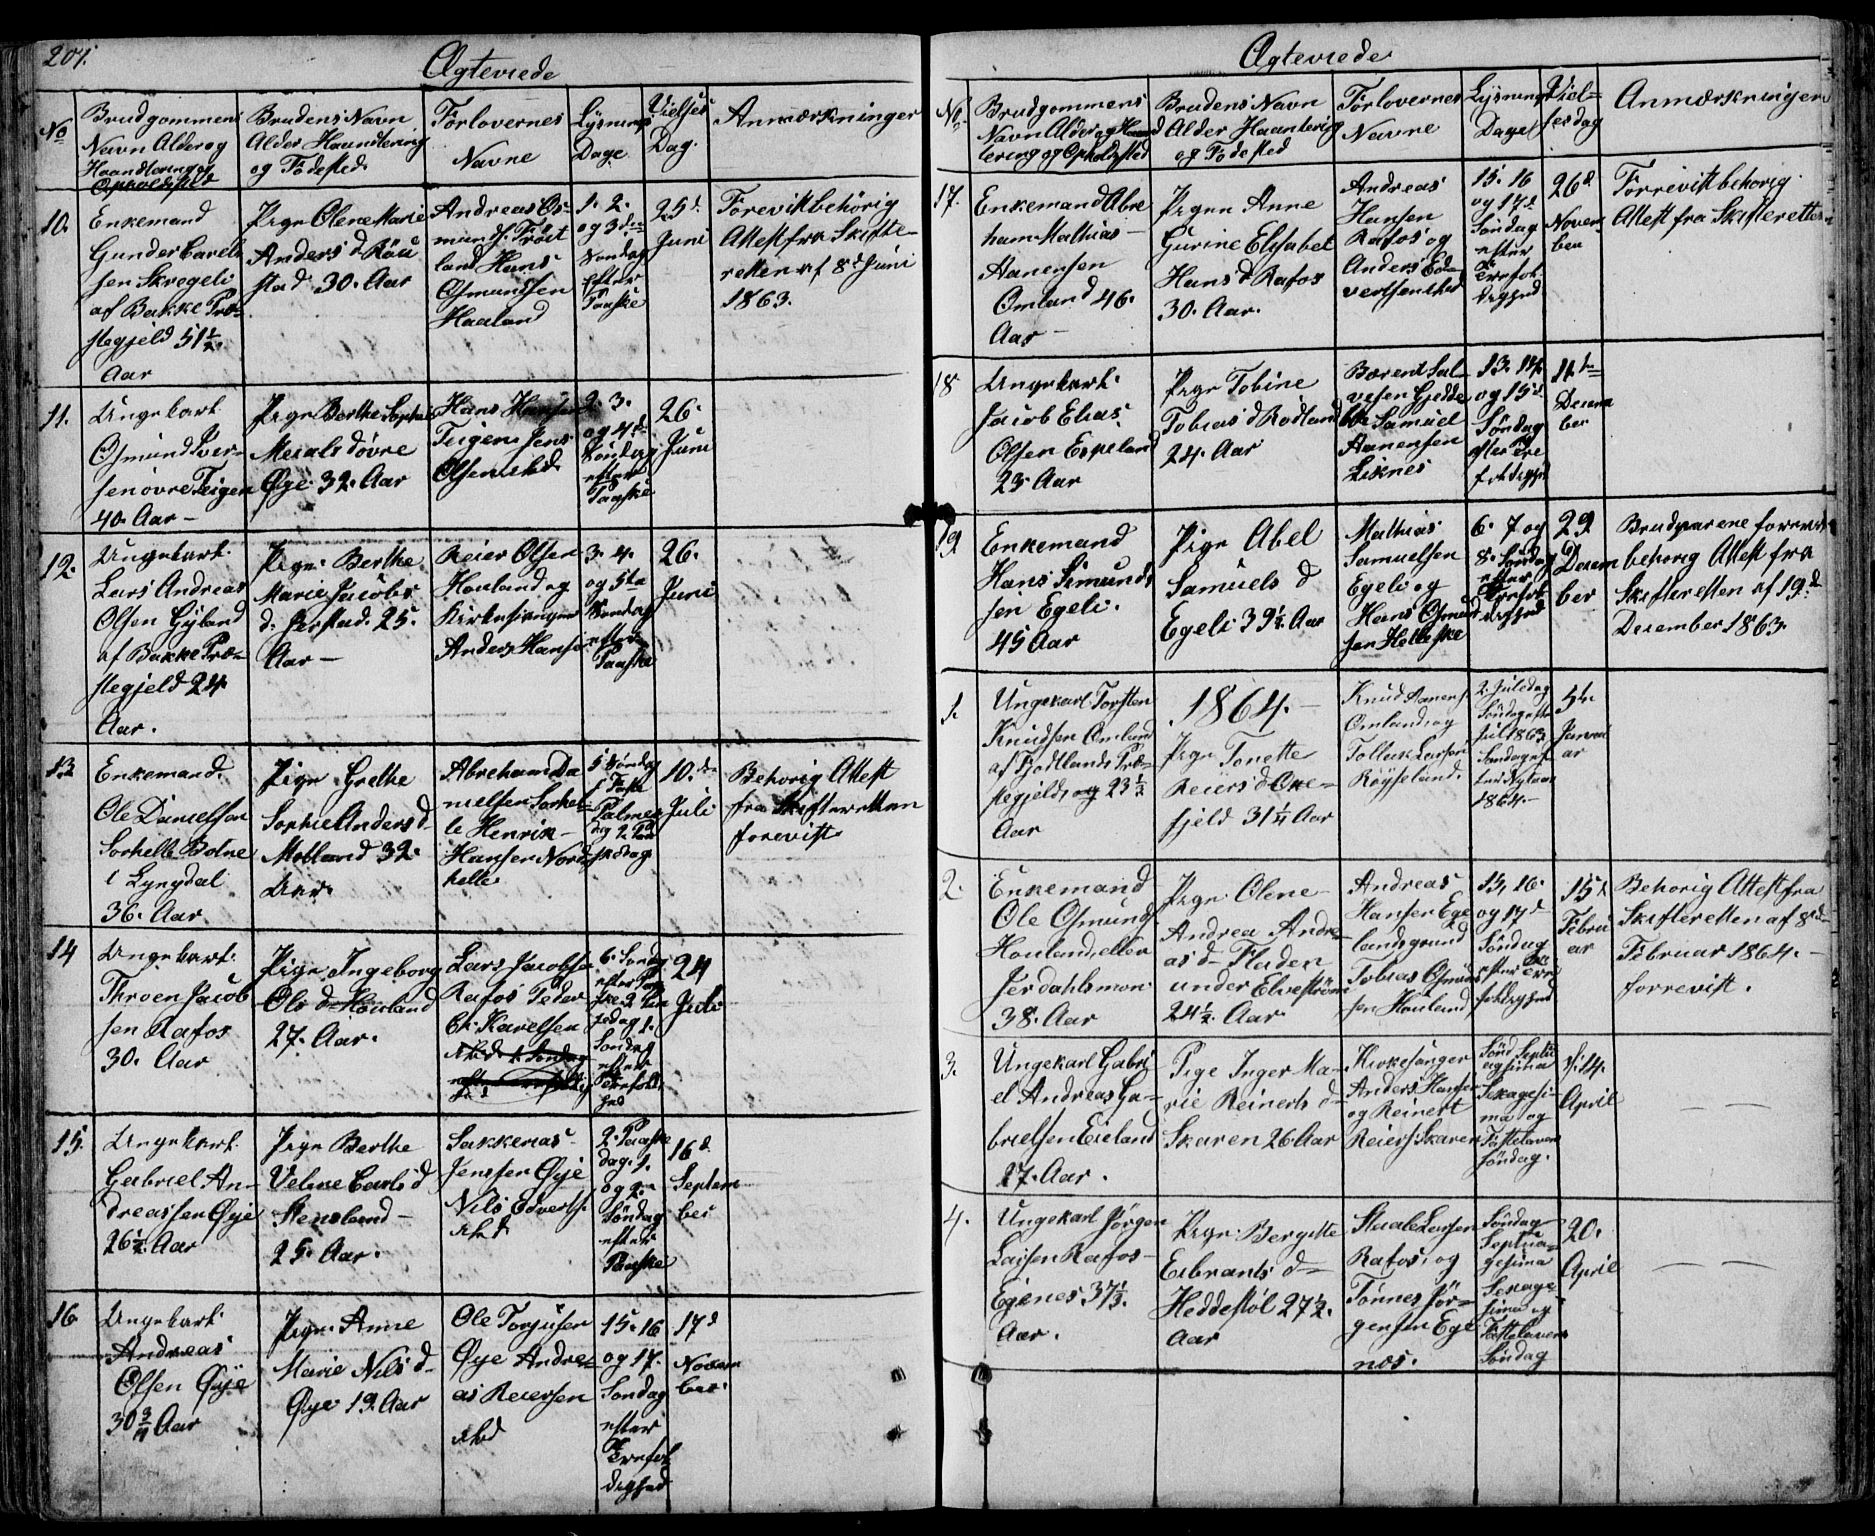 201.
Ægteviede
No
Brudgommens
Navn Alder og
Haandtering og
Opholdssted
Brudens Navn
Alder Haandtering
og Födested
Forlovernes
Navne
Lysnings
Dage
Vielses
Dag.
Anmærkninger
10.
Enkemand
Gunder Carels
sen Skregeli
af Bakke Præ-
stegjeld 51½
Aar
Pige Olene Marie
Anders d. Röu
stad 30. Aar
Andreas Os-
munds. Tröst
land Hans
Osmundsen
Haaland
1. 2.
og 3de
Söndag
Efter
Paaske
25d.
Juni
Forevist behörig
Attest fra Skifte-
retten af 8d Juni
1863.
11.
Ungekarl
Osmund Iver-
sen övre Teigen
40. Aar -
Pige Berthe Sophie
Meialsd övre
Öye. 32. Aar
Hans Hansen
Teigen Jens
Olsen ibd.
2. 3.
og 4de
Söndag
efter
Paaske
26.
Juni
12.
Ungekarl.
Lars Andreas
Olsen Gyland
af Bakke Præ-
stegjeld 24
Aar.
Pige Berthe
Marie Jacobs
d. Jerstad. 25.
Aar -
Reier Olsen
Houland og
Kirkesanger
Anders Hansen
3. 4.
og 5te
Söndag
efter
Paaske
26.
Juni
13
Enkemand.
Ole Danielsen
Sorhelle Botne
i Lyngdal
36. Aar
Pige Grethe
Sophie Anders d.
Motland 32.
Aar.
Abreham Da
nielsen Sorhel-
le Henrik
Hansen Nord
helle
5 Söndag
i Faste
Palme
dag
10. de
Juli
Behörig Attest
fra Skifteretten
forevist
14
Ungekarl.
Throen Jacob
sen Rafos
30. Aar
Pige Ingeborg
Ols d. Houland
27. Aar.
Lars Jacobsen
Rafos Peder
Chr. Karelsen
ibd.
6. Söndag
efter Paa
ske 2 Pin
sedag 1.
Söndag
efter
Trefoldig
hed
24
Juli
15.
Ungekarl.
Gabriel An-
dreassen Öye
26½ Aar
Pige Berthe
Veline Carls d
Stensland -
25. Aar.
Sakkerias
Jenssen Öye
Nils Edverts.
ibd
2. Paaske
dag. 1.
og 2.
Söndag
efter
Paaske
16d.
Septem
ber
16
Ungekarl.
Andreas
Olsen Öye
30¾ Aar
Pige Anne
Marie Nils d-
Öye 19. Aar
Ole Torjusen
Öye Andre-
as Reiersen
ibd
15. 16
og 17.
Söndag
efter
Trefol
dighed
17d
Novem
ber
Ægteviede
No.
Brudgommens
Navn Alder og Haand
tering og Opholdssted
Brudens Navn
Alder Haantering
og Fodested
Forlovernes
Navne
Lysnings
Dage
Viel-
sesdag
Anmærkninger
17.
Enkemand Abre
ham Mathias -
Aanensen
Omland 46.
Aar -
Pigen Anne
Gurine Elisabet
Hans d Rafos
30. Aar.
Andreas
Hansen
Rafos og
Anders Ed-
vertsen ibd
15. 16
og 17d
Söndag
efter
Trefol
dighed
26d.
Novem
ber
Forrevist behörig
Attest fra Skifteretten
18
Ungekarl.
Jacob Elias
Olsen Espeland
23 Aar
Pige Tobine
Tobias d Rödland
24. Aar
Bærent Sal-
vesen Gjedde
bo Samuel
Aanensen
Liknes
13. 14.
og 15d.
Söndag
efter Tre
foldighed
11te
Decem
ber
19
Enkemand
Hans Simund
sen Egeli.
45 Aar
Pige Abel
Samuels d
Egeli 39½ Aar
Mathias
Samuelsen
Egeli og
Hans Osmund
sen Helleskc
6. 7 og
8. Söndag
efter
Trefol
dighed
29
Decem
ber
Brudparene forrevist
behörig Attest fra
Skifteretten af 19d.
December 1863.
1.
Ungekarl Torsten
Knudsen Omland
af Fjotlands Præ-
stegjeld, og 23½
Aar
1864. -
Pige Tonette
Reiers d Ore-
fjeld 31¼ Aar
Knud Aanens.
Omland og
Tollak Larsen
Röyseland.
2. Juledag
Söndag efter
Jul 1863
Söndag ef
ter Nytaar
1864. -
5te.
Janu
ar
2.
Enkemand
Ole Osmunds
Houland, eller
Jerdahlsmon
38. Aar
Pige Olene
Andrea Andre-
as d- Fladen
under Elvestrøm
24½. Aar.
Andreas
Hansen Ege
landsgrund
Tobias Osmund
sen Houland
15, 16.
og 17d
Söndag
efter Tre
foldighed
15d
Febru
ar
Behörig Attest fra
Skifteretten af 8de
Februar 1864. -
forrevist.
3.
Ungekarl Gabri-
el Andreas Ga-
brielsen Eieland
27. Aar.
Pige Inger Ma-
rie Reinerts d-
Skaren 26 Aar
Kirkesanger
Anders Hansen
og Reinert
Reiers. Skaren
Sönd Septu
agesima
Sexagesi-
ma og
Fastelaven
söndag.
d. 14.
April
— —
4.
Ungekarl Jörgen
Larsen Rafos -
Egenes 37⅓.
Aar.
Pige Bergitte
Eibrants d-
Heddestöl 27½.
Aar
Stuale Larsen
Rafos, og
Tönnes Jör-
gensen Ege
nes.
Söndag
Septua-
gesima
Sexage-
sima og
Fastelavens
Söndag
20.
April
— —